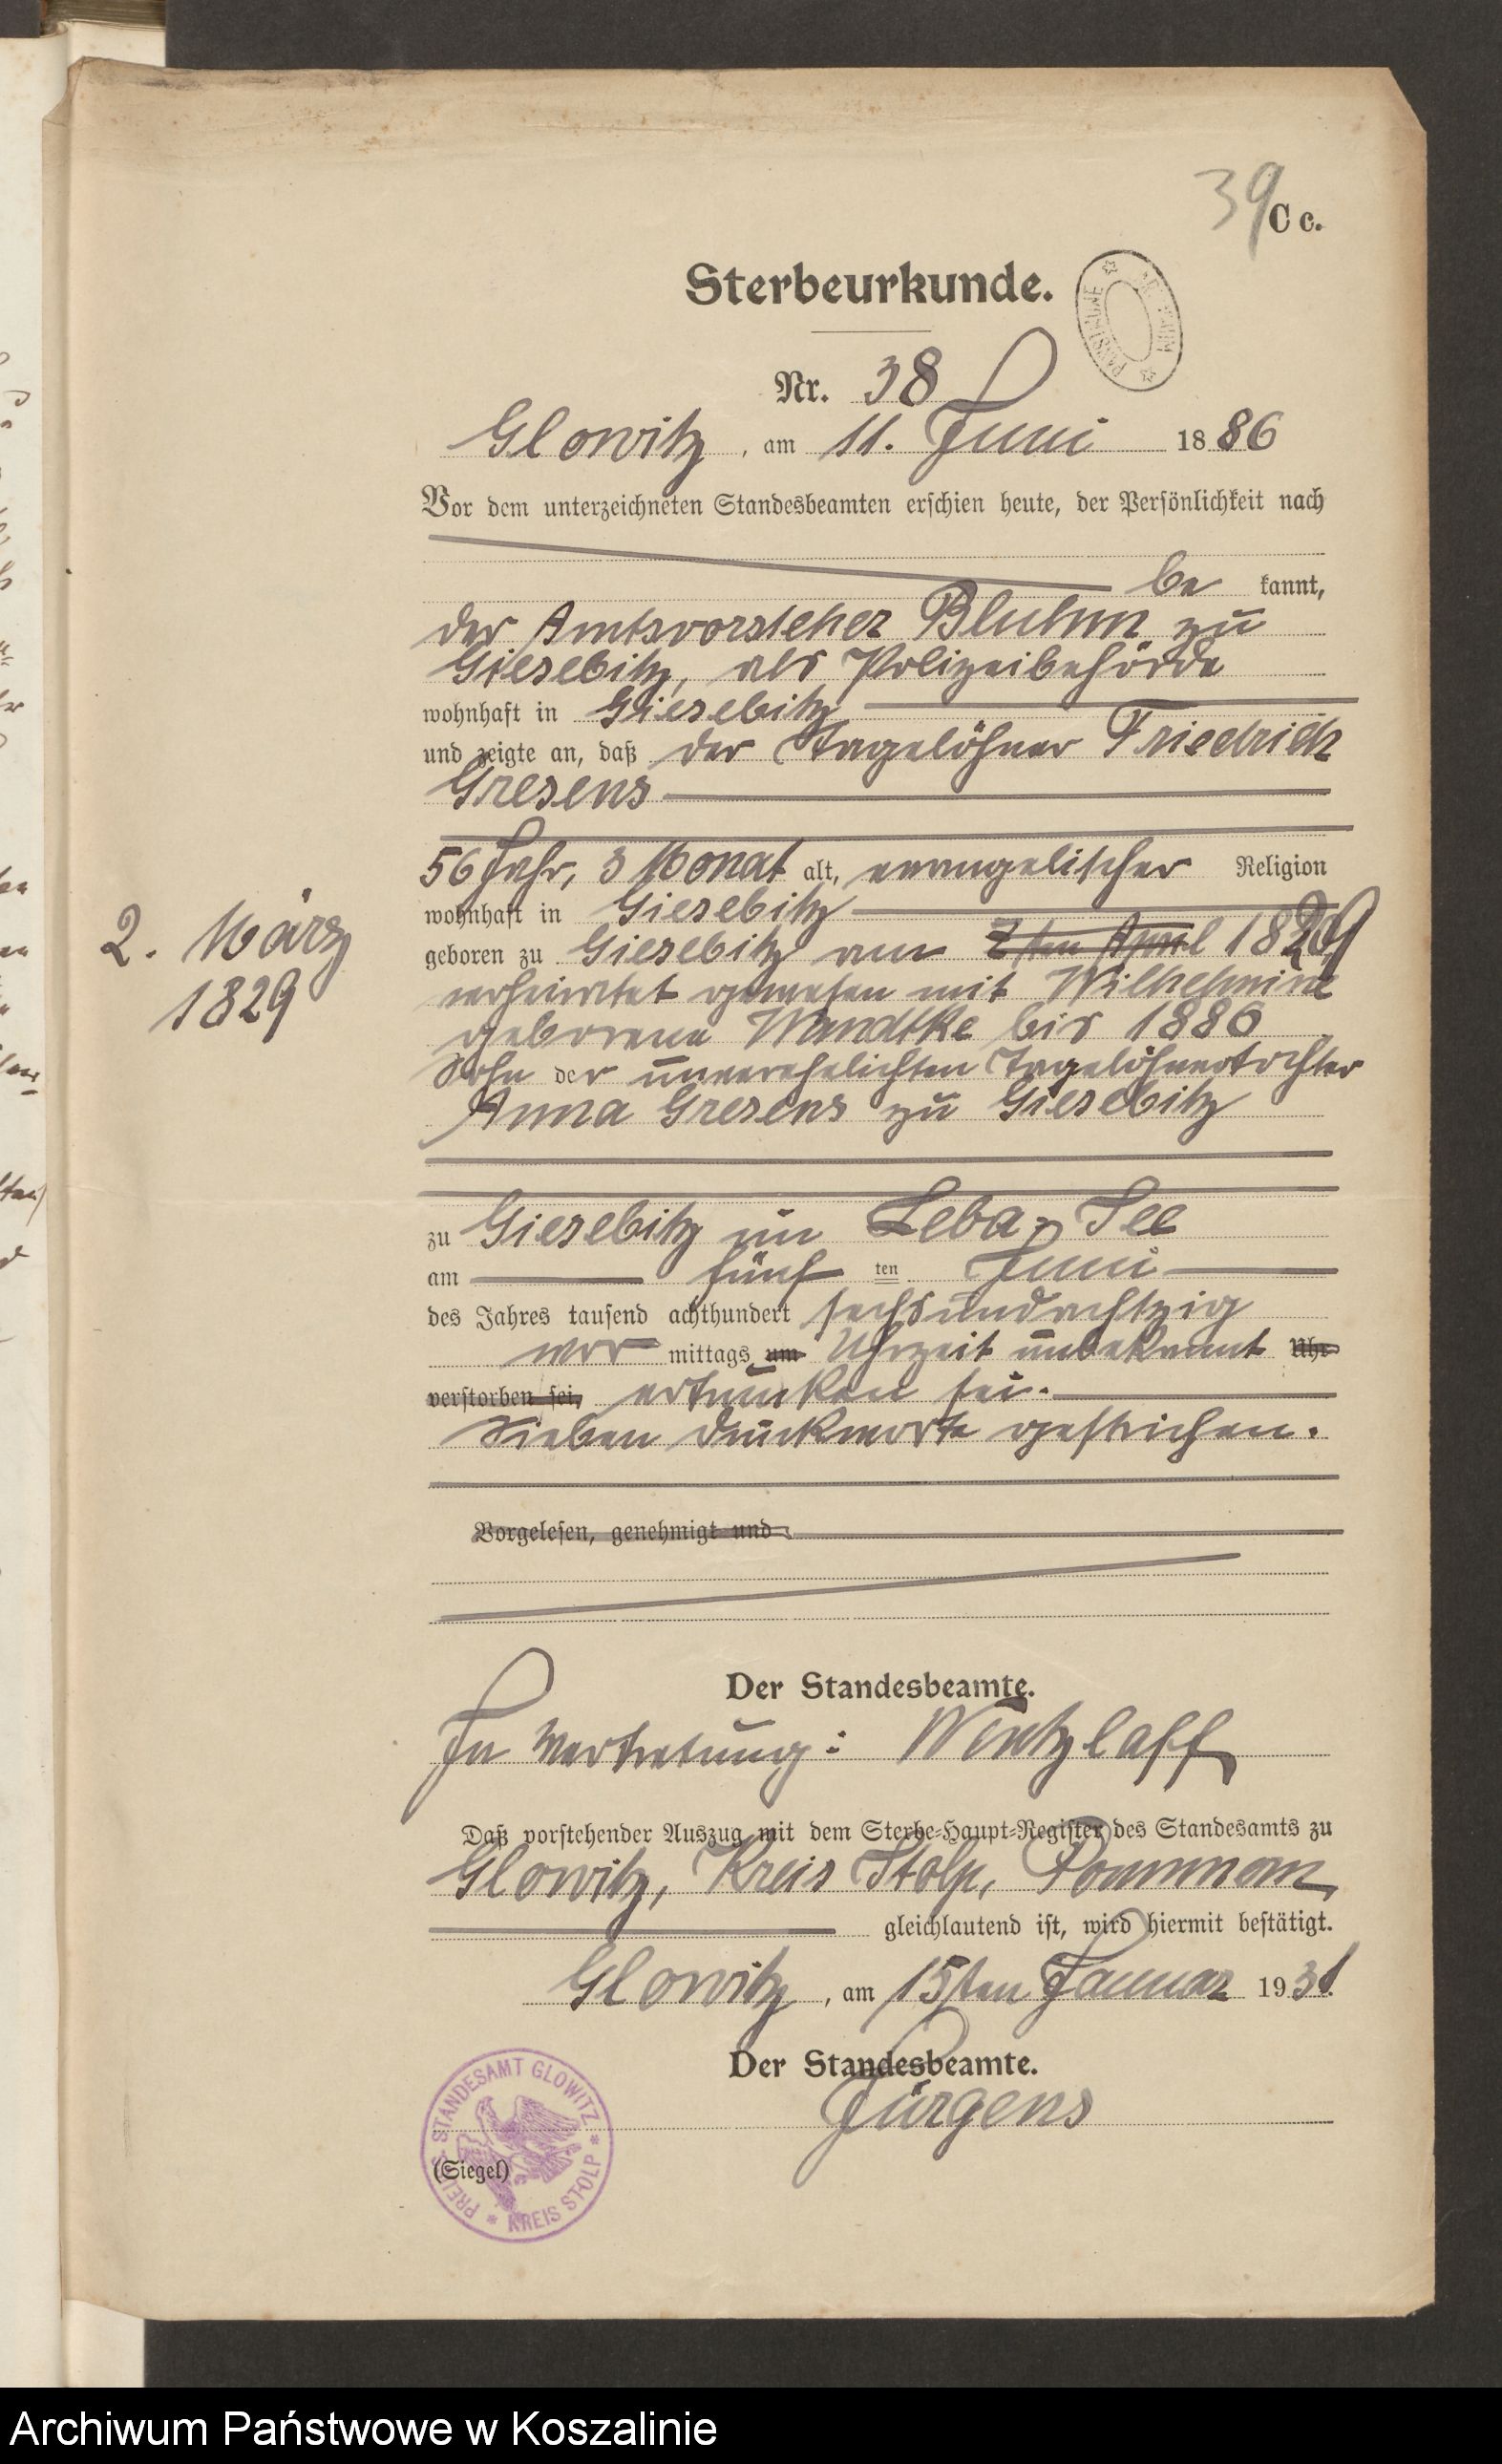 39
C c.
Sterbeurkunde.
Nr. 38
Glowitz, am 11. Juni 1886
Vor dem unterzeichneten Standesbeamten erschien heute, der Persönlichkeit nach
be kannt,
der Amtsvorsteher Bluhm zu
Giesebitz, als Polizeibehörde
wohnhaft in Giesebitz
und zeigte an, daß der Tagelöhner Friedrich
Gresens
56 Jahr, 3 Monat alt, evangelischer Religion
wohnhaft in Giesebitz
geboren zu Giesebitz am 7ten April 1829
2. März
1829
verheiratet gewesen mit Wilhelmine
geborene Wandtke bis 1886
Sohn der unverehelichten Tagelöhnertochter
Anna Gresens zu Giesebitz
zu Giesebitz im Leba-See
am fünf ten Juni
des Jahres tausend achthundert sechsundachtzig
vor mittags um Uhrzeit unbekannt Uhr
verstorben sei, ertrunken sei.
Sieben Druckworte gestrichen.
Vorgelesen, genehmigt und
Der Standesbeamte.
In Vertretung: Wintzlaff
Daß vorstehender Auszug mit dem Sterbe-Haupt-Register des Standesamts zu
Glowitz, Kreis Stolp, Pommern
gleichlautend ist, wird hiermit bestätigt.
Glowitz, am 15ten Januar 1931.
Der Standesbeamte.
Jürgens
PREUSS. STANDESAMT GLOWITZ * KREIS STOLP *
(Siegel)
Archiwum Państwowe w Koszalinie